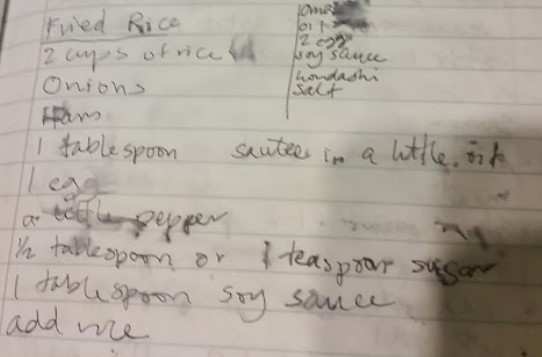 Fried Rice
2 cups of rice
Onions
Ham
1 tablespoon sautee in a little oil
1 egg
a little pepper
½ tablespoon or 1 teaspoon sugar
1 tablespoon soy sauce
add rice
oil
2 egg
soy sauce
hondashi
salt